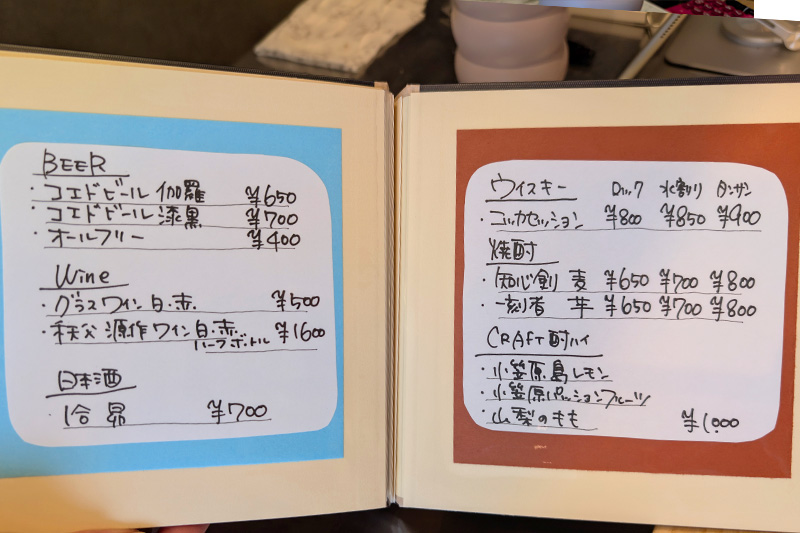 BEER
・コエドビール 伽羅 ¥650
・コエドビール 漆黒 ¥700
・オールフリー ¥400
Wine
・グラスワイン 白・赤 ¥500
・秩父 源作ワイン 白・赤 ¥1600
ハーフボトル
日本酒
・1合 昴 ¥700
ウイスキー ロック 水割り タンサン
・コッカセッション ¥800 ¥850 ¥900
焼酎
・知心剣 麦 ¥650 ¥700 ¥800
・一刻者 芋 ¥650 ¥700 ¥800
CRAFT酎ハイ
・小笠原島レモン
・小笠原パッションフルーツ
・山梨のもも ¥1,000